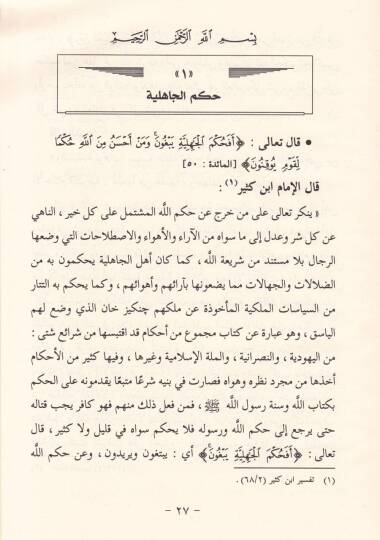 بِسْمِ اللَّهِ الرَّحْمَٰنِ الرَّحِيمِ
«١»
حكم الجاهلية
• قال تعالى : ﴿أَفَحُكْمَ الْجَٰهِلِيَّةِ يَبْغُونَ وَمَنْ أَحْسَنُ مِنَ اللَّهِ حُكْمًا
لِقَوْمٍ يُوقِنُونَ﴾ [المائدة : ٥٠]
قال الإمام ابن كثير(١) :
« ينكر تعالى على من خرج عن حكم اللَّه المشتمل على كل خير ، الناهي
عن كل شر وعدل إلى ما سواه من الآراء والأهواء والاصطلاحات التي وضعها
الرجال بلا مستند من شريعة اللَّه ، كما كان أهل الجاهلية يحكمون به من
الضلالات والجهالات مما يضعونها بآرائهم وأهوائهم ، وكما يحكم به التتار
من السياسات الملكية المأخوذة عن ملكهم چنكيز خان الذي وضع لهم
الياسق ، وهو عبارة عن كتاب مجموع من أحكام قد اقتبسها من شرائع شتى :
من اليهودية ، والنصرانية ، والملة الإسلامية وغيرها ، وفيها كثير من الأحكام
أخذها من مجرد نظره وهواه فصارت في بنيه شرعًا متبعًا يقدمونه على الحكم
بكتاب اللَّه وسنة رسول اللَّه ﷺ ، فمن فعل ذلك منهم فهو كافر يجب قتاله
حتى يرجع إلى حكم اللَّه ورسوله فلا يحكم سواه في قليل ولا كثير ، قال
تعالى : ﴿أَفَحُكْمَ الْجَٰهِلِيَّةِ يَبْغُونَ﴾ أي : يبتغون ويريدون ، وعن حكم اللَّه
(١) تفسير ابن كثير (٦٨/٢) .
- ٢٧ -